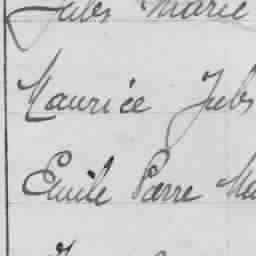 Jules Marie
Maurice Jules
Emile Pierre Ma